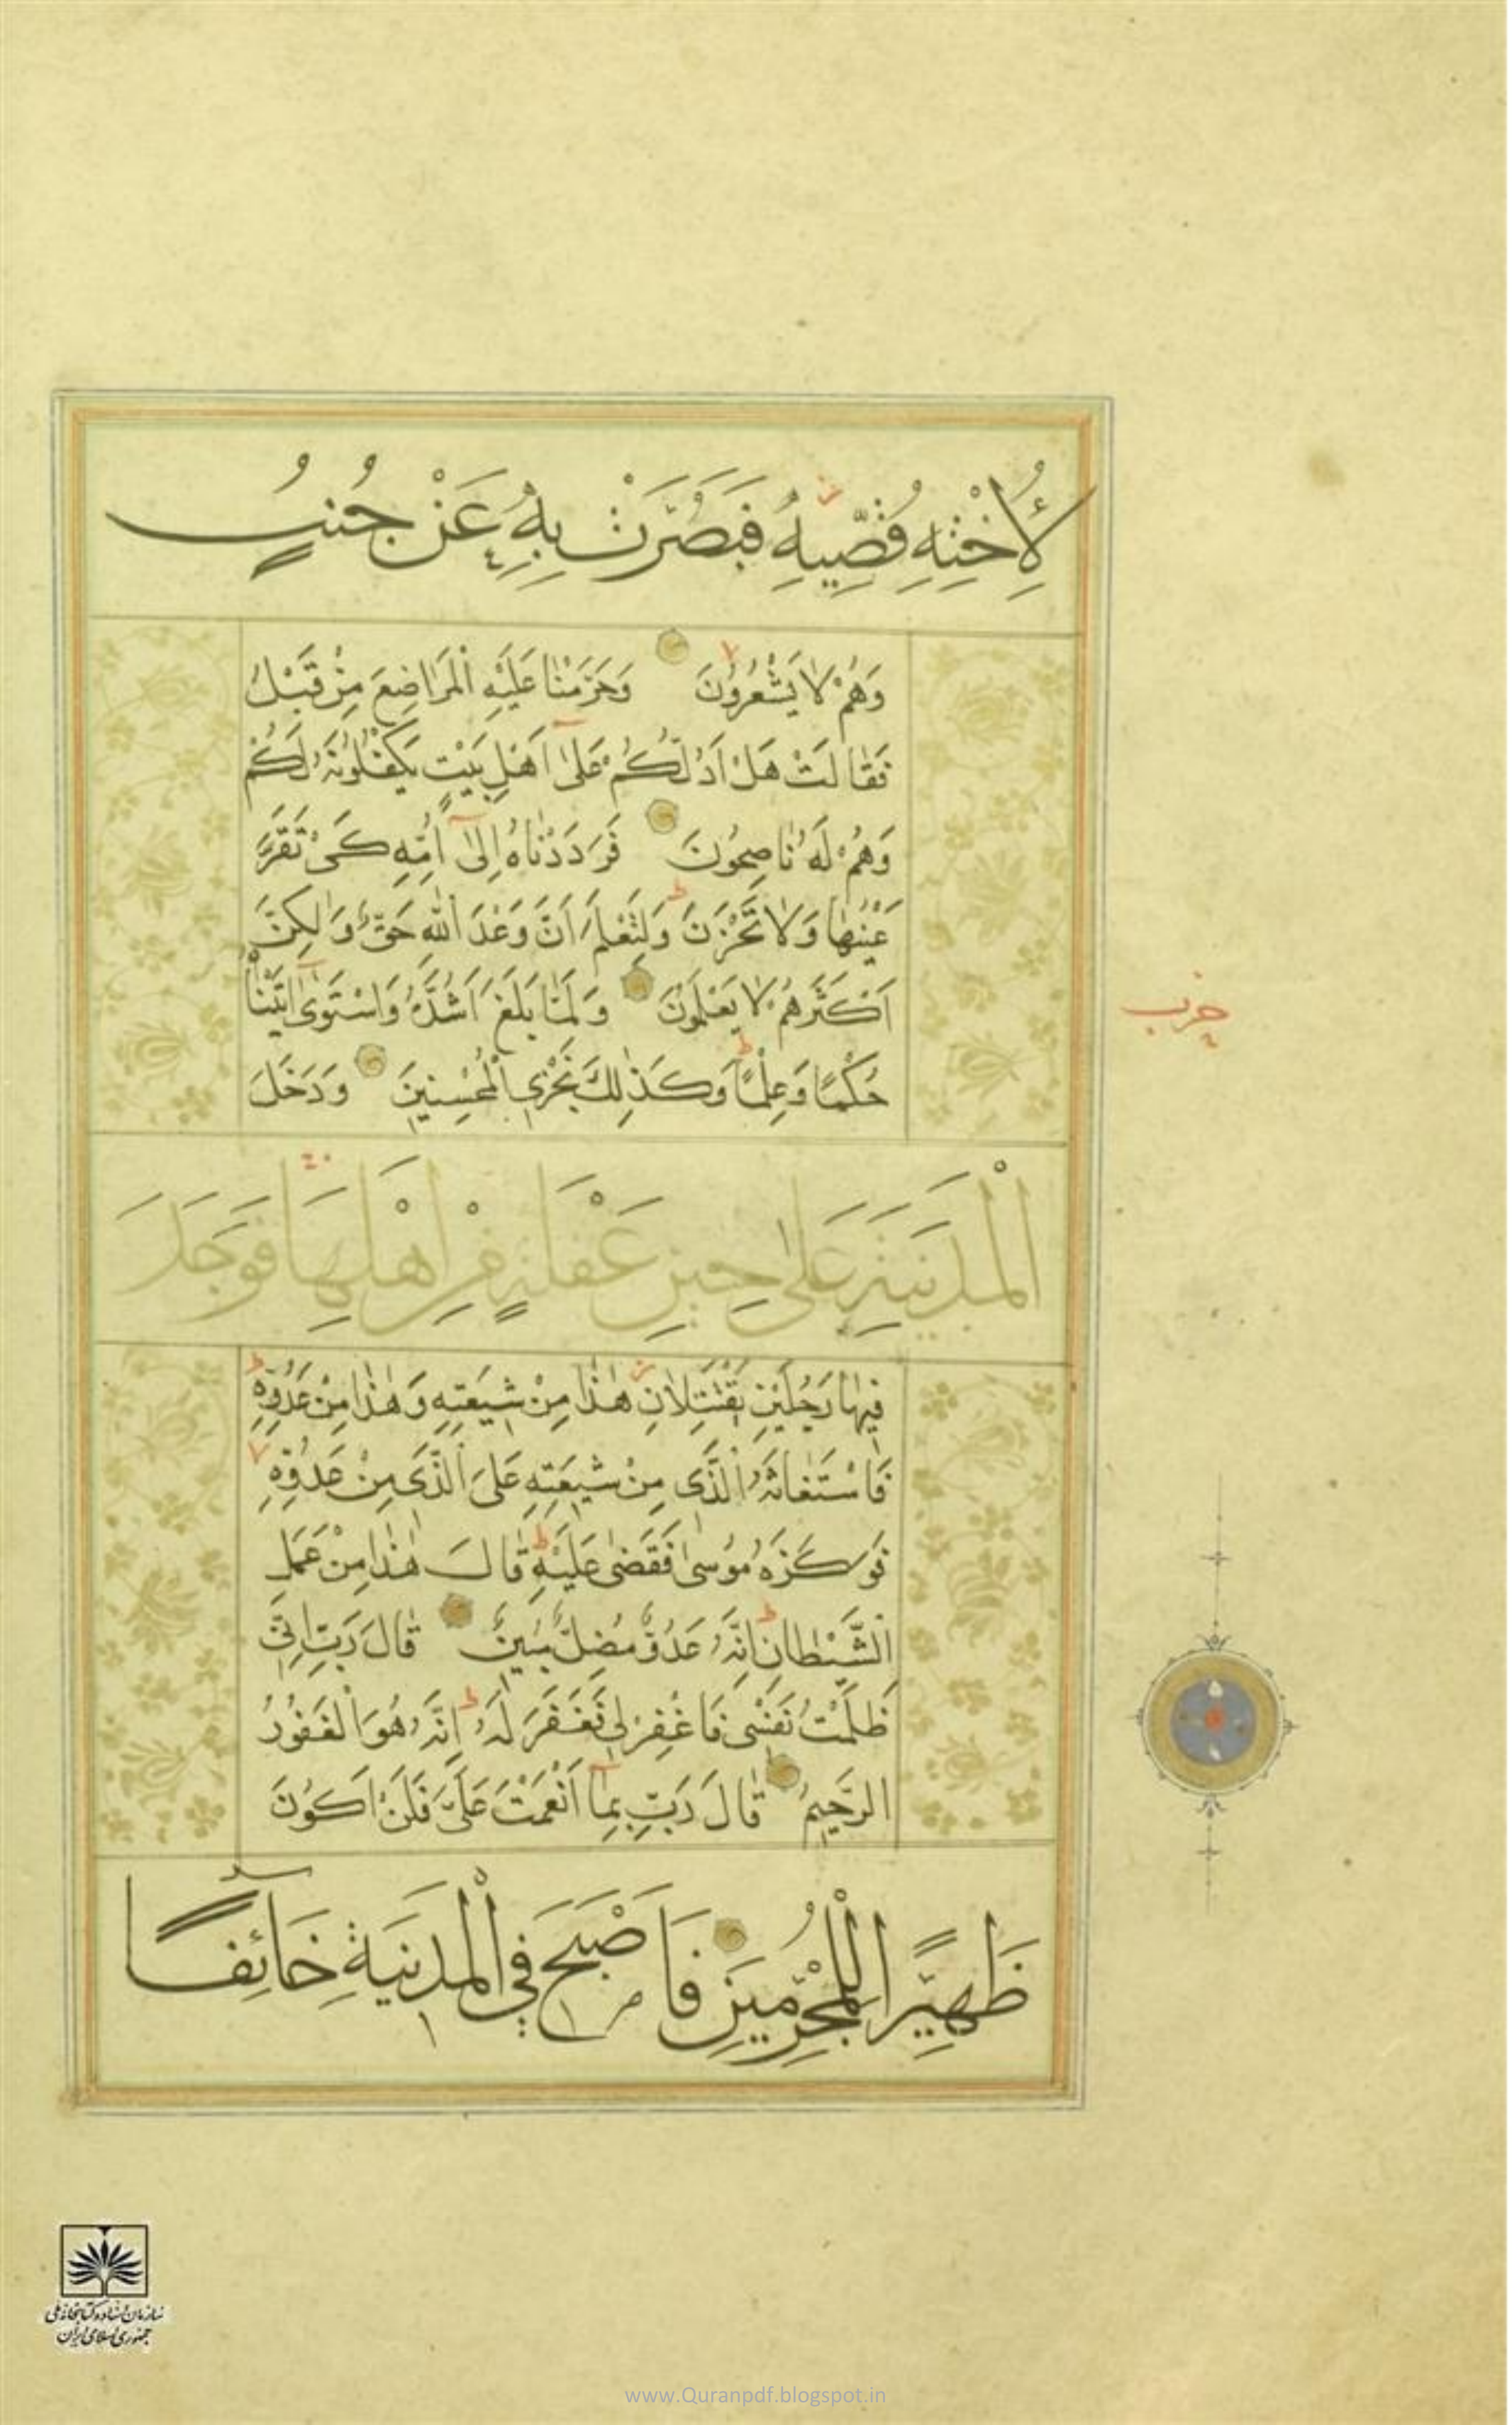 لِأُخْتِهِ قُصِّيهِ فَبَصُرَتْ بِهِ عَنْ جُنُبٍ
وَهُمْ لَا يَشْعُرُونَ وَحَرَّمْنَا عَلَيْهِ الْمَرَاضِعَ مِنْ قَبْلُ
فَقَالَتْ هَلْ اَدُلُّكُمْ عَلٰى اَهْلِ بَيْتٍ يَكْفُلُونَهُ لَكُمْ
وَهُمْ لَهُ نَاصِحُونَ فَرَدَدْنَاهُ اِلٰى اُمِّهِ كَىْ تَقَرَّ
عَيْنُهَا وَلَا تَحْزَنَ وَلِتَعْلَمَ اَنَّ وَعْدَ اللّٰهِ حَقٌّ وَلٰكِنَّ
اَكْثَرَهُمْ لَا يَعْلَمُونَ وَلَمَّا بَلَغَ اَشُدَّهُ وَاسْتَوٰى اٰتَيْنَاهُ
حُكْمًا وَعِلْمًا وَكَذٰلِكَ نَجْزِى الْمُحْسِنِينَ وَدَخَلَ
الْمَدِينَةَ عَلٰى حِينِ غَفْلَةٍ مِنْ اَهْلِهَا فَوَجَدَ
فِيهَا رَجُلَيْنِ يَقْتَتِلَانِ هٰذَا مِنْ شِيعَتِهِ وَهٰذَا مِنْ عَدُوِّهِ
فَاسْتَغَاثَهُ الَّذِى مِنْ شِيعَتِهِ عَلَى الَّذِى مِنْ عَدُوِّهِ
فَوَكَزَهُ مُوسٰى فَقَضٰى عَلَيْهِ قَالَ هٰذَا مِنْ عَمَلِ
الشَّيْطَانِ اِنَّهُ عَدُوٌّ مُضِلٌّ مُبِينٌ قَالَ رَبِّ اِنِّى
ظَلَمْتُ نَفْسِى فَاغْفِرْ لِى فَغَفَرَ لَهُ اِنَّهُ هُوَ الْغَفُورُ
الرَّحِيمُ قَالَ رَبِّ بِمَا اَنْعَمْتَ عَلَىَّ فَلَنْ اَكُونَ
ظَهِيرًا لِلْمُجْرِمِينَ فَاَصْبَحَ فِي الْمَدِينَةِ خَائِفًا
حزب
سازمان اسناد و کتابخانه ملی
جمهوری اسلامی ایران
www.Quranpdf.blogspot.in